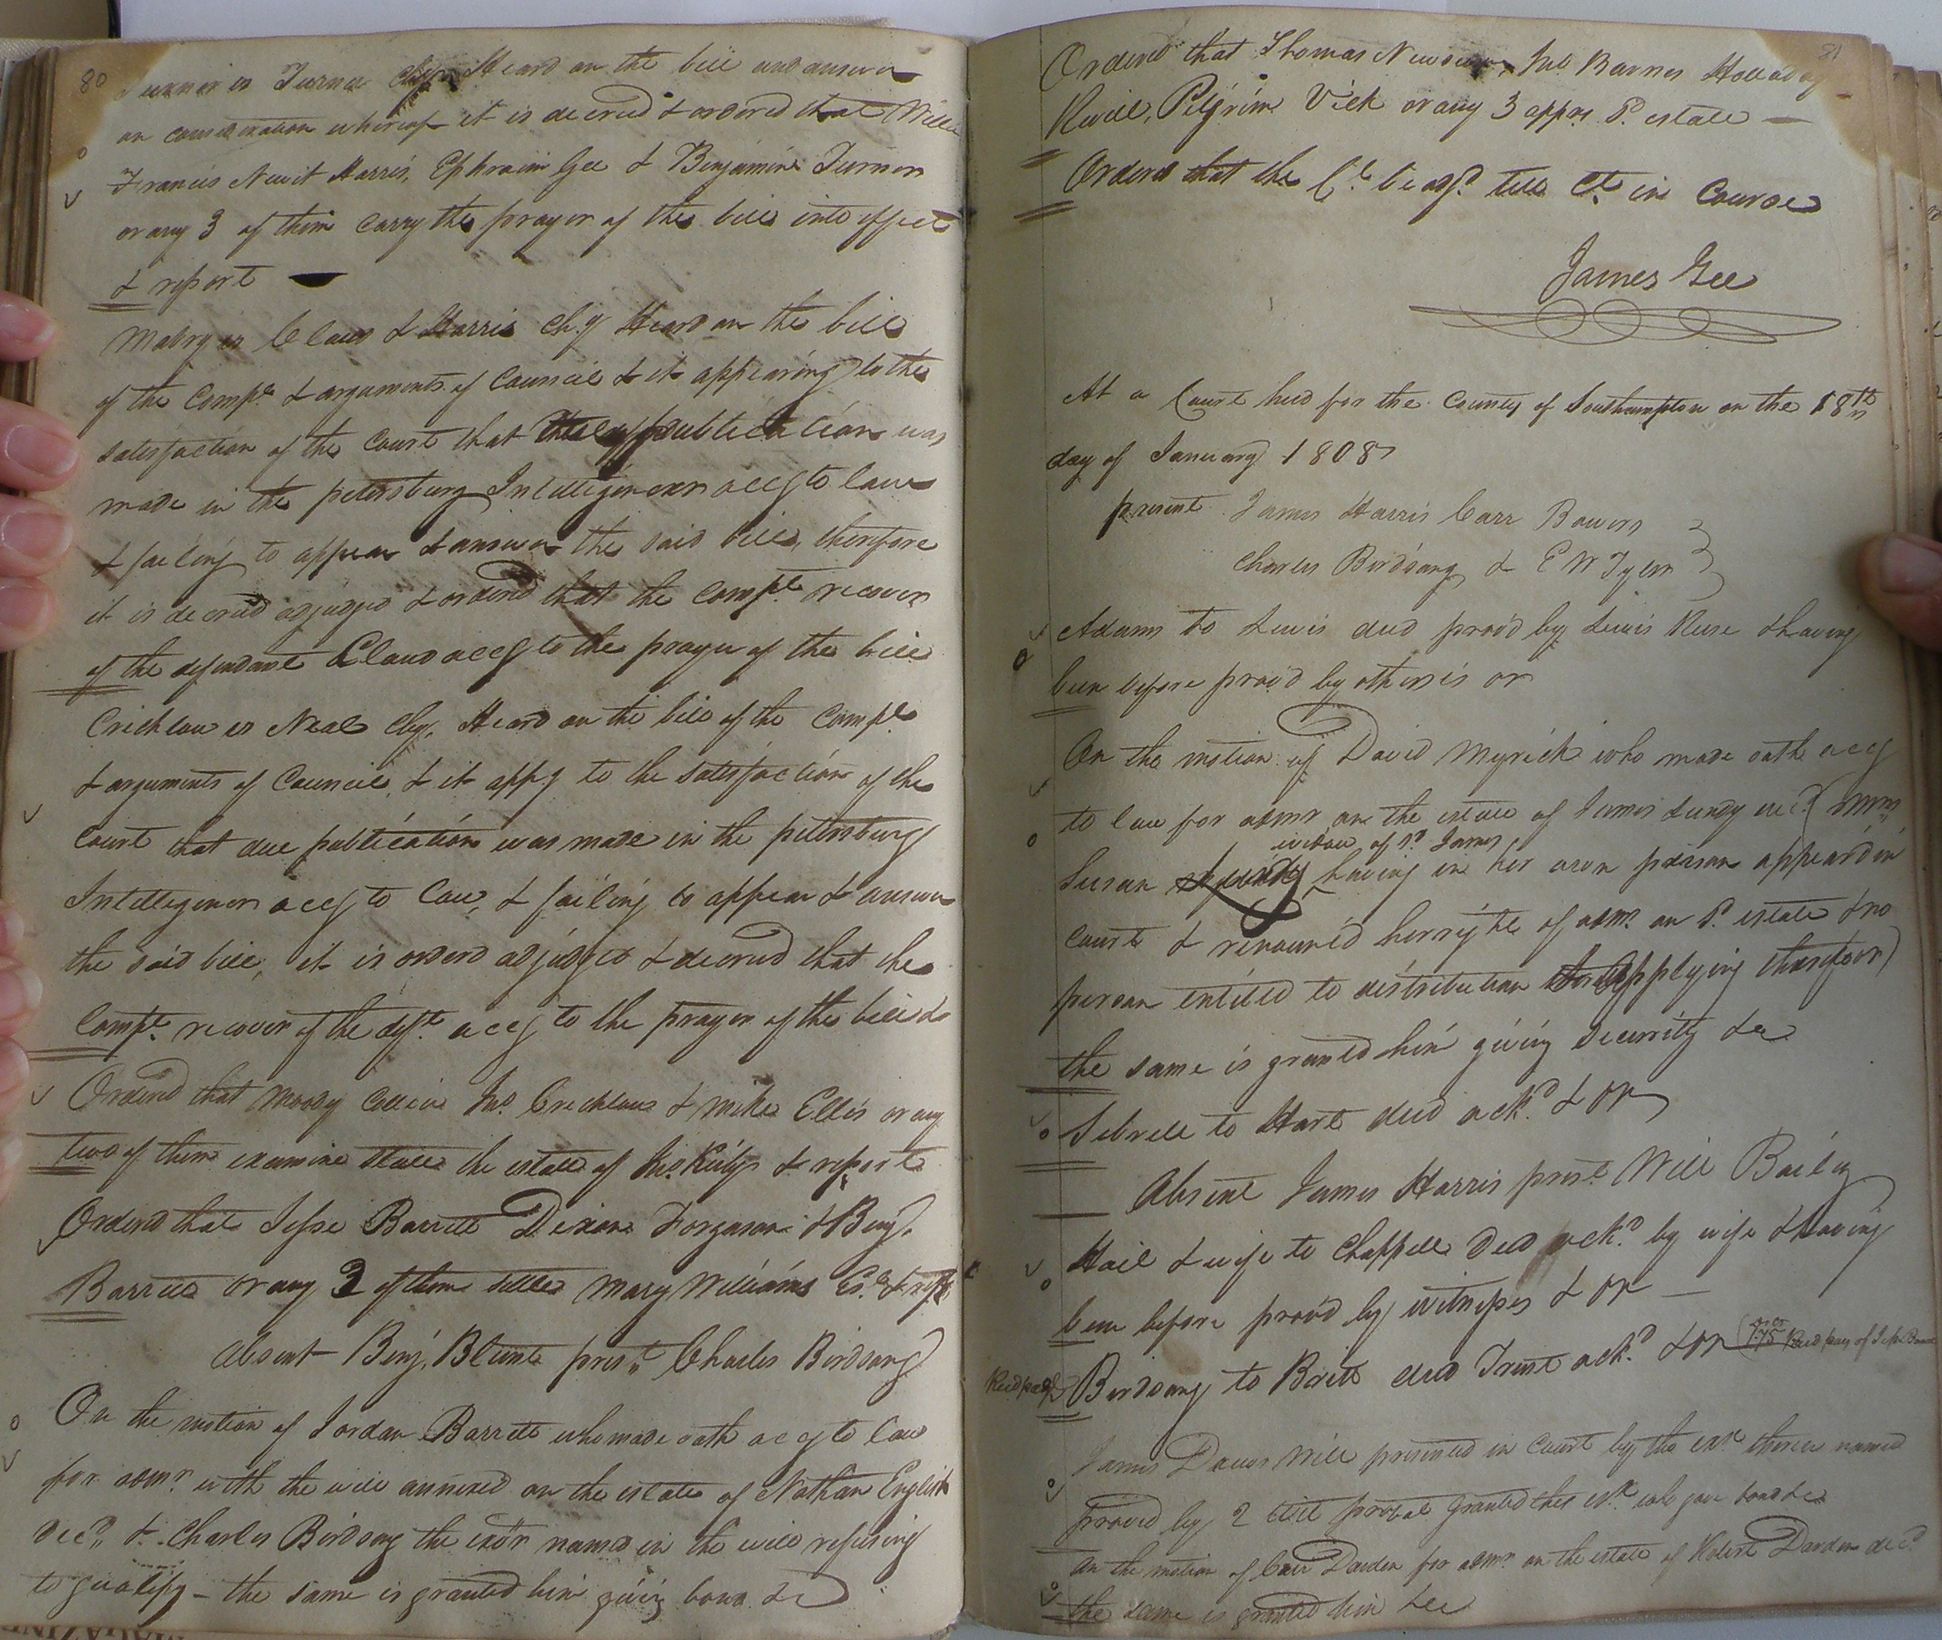 80
Turner vs Turner Chy Heard on the bill and answer
on consideration whereof it is decreed & ordered that Willie
Francis Newit Harris, Ephraim Gee & Benjamine Turner
or any 3 of them carry the prayer of the bill into effect
& report
Mabry vs Claud & Harris Chy Heard on the bill
of the Compt. & arguments of Council & it appearing to the
satisfaction of the Court that publication was
made in the petersburg Intelligencer accg to law
& failing to appear & answer the said bill, therefore
it is decreed adjudged & ordered that the Compt. recover
of the defendant Claud accg to the prayer of the bill
Crichlow vs Neal Chy. Heard on the bill of the Compt
& arguments of Council, & it appg to the satisfaction of the
Court that due publication was made in the petersburg
Intelligencer accg to law, & failing to appear & answer
the said bill, it is ordered adjudged & decreed that the
Compt. recover of the deft. accg to the prayer of the bill &c
Ordered that Moody Jno. Crichlow & Mike Ellis or any
two of them examine state the estate of Jno. & report
Ordered that Jesse Barrett Dixon Forgason & Benj.
Barrett or any 2 of them settle Mary Williams Es. & rept
absent Benj. Blunt prest. Charles Birdsong
On the motion of Jordan Barrett who made oath accg to law
for admr. with the will annexed on the estate of Nathan English
decd. & Charles Birdsong the exor named in the will refusing
to qualify – the same is granted him givig bond &c
81
Ordered that Thomas Newsum, Jno. Barnes Holladay
Revill, Pilgrim Vick or any 3 appre. sd. estate
Ordered that the Ct. be adjd. till Ct. in Course
James Gee
At a Court held for the County of Southampton on the 18th
day of January 1808
present James Harris Carr Bowers
Charles Birdsong & E W Tyler
Adams to Lewis deed provd by Lewis & having
been before provd by others is or
On the motion of David Myrick who made oath accg
to law for admr on the estate of James Lundy decd. (Mrs
widow of sd. James
Susan having in her own person appeard in
Court & renounced her right of admr. on sd. estate & no
person entitled to distribution applying therefor)
the same is granted him giving security &c
Sebrell to Hart deed ackd. & OR
Absent James Harris prest. Will Bailey
Hail & wife to Chappell Deed ackd. by wife & having
been before provd by witnesses & OR
Birdsong to Britt deed Trust ackd. & OR
James Davis Will presented in Court by the exr. therein named
proved by 2 probat granted the exr. who gave bond &c
On the motion of Carr Darden for admr. on the estate of Robert Darden decd.
the same is granted him &c